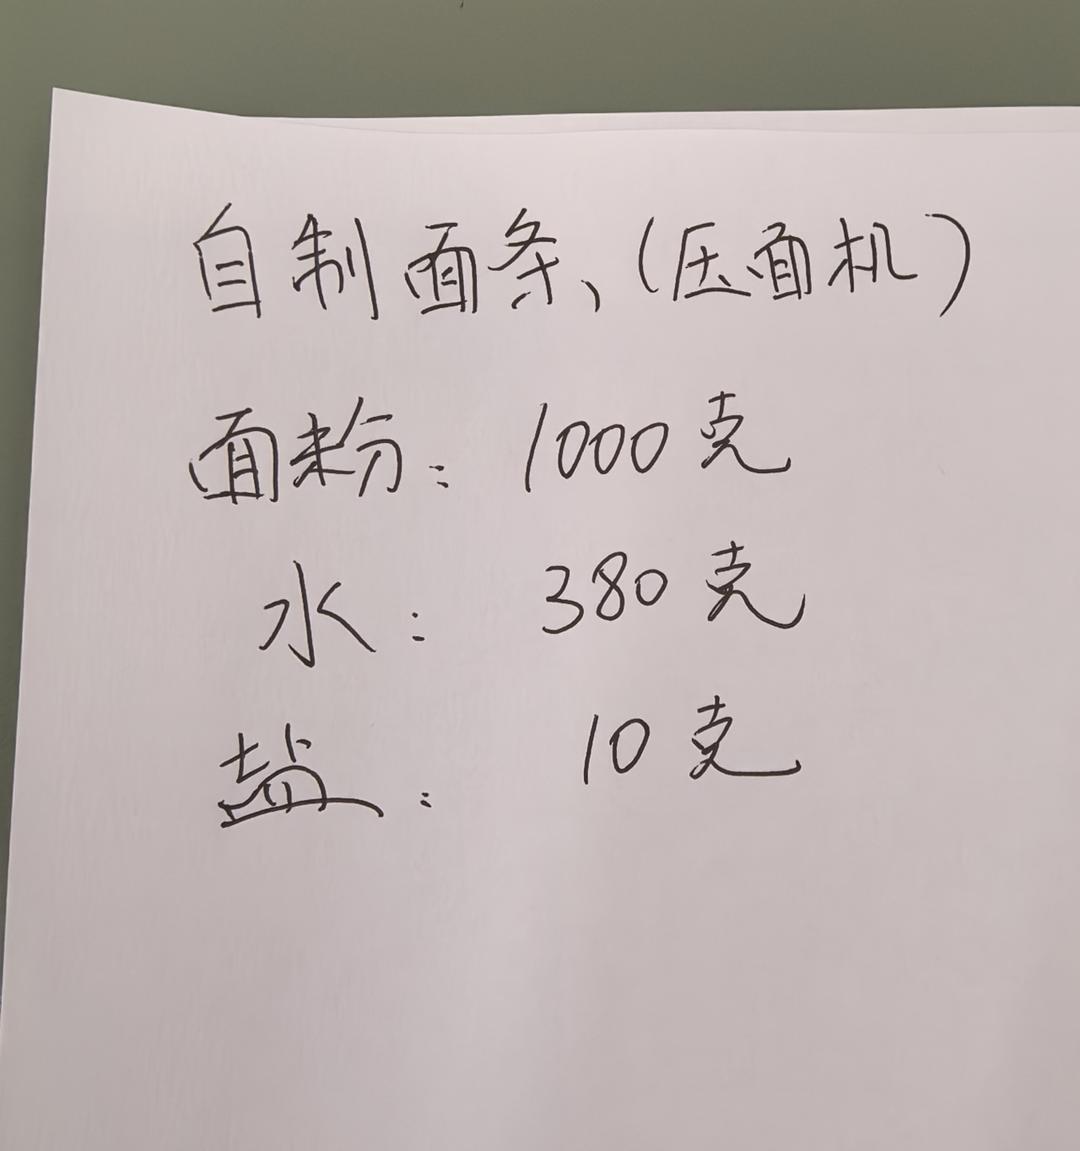 自制面条、(压面机)
面粉: 1000克
水: 380克
盐: 10克